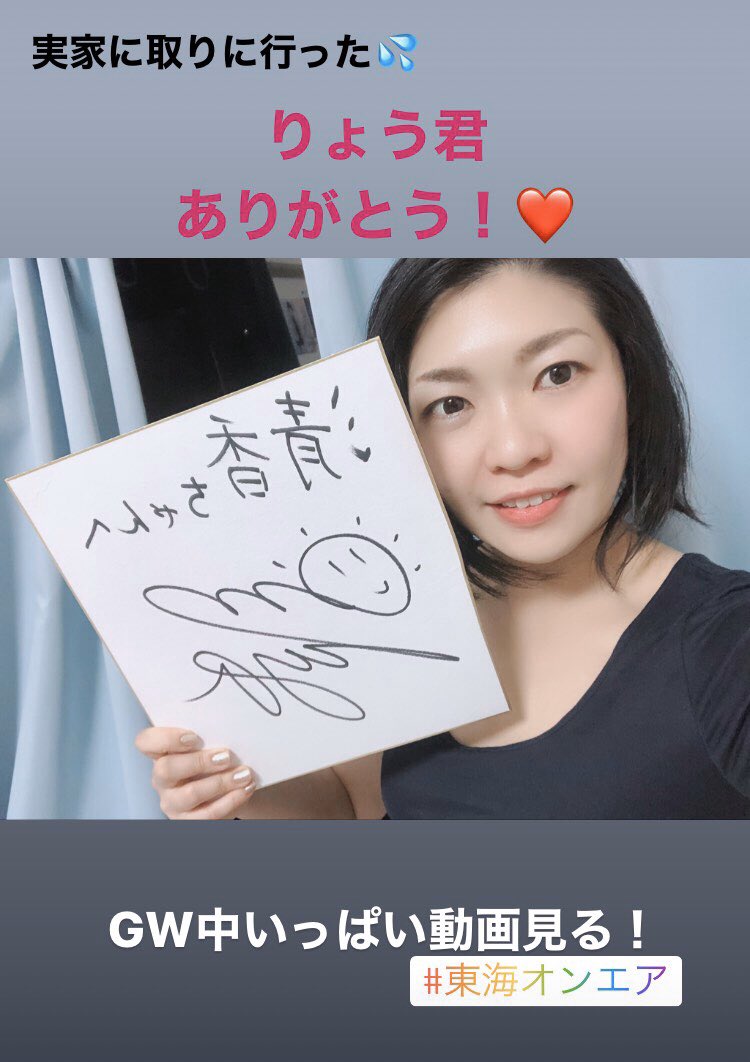 実家に取りに行った💦
りょう君
ありがとう！❤️
清香
ちゃんへ
GW中いっぱい動画見る！
#東海オンエア